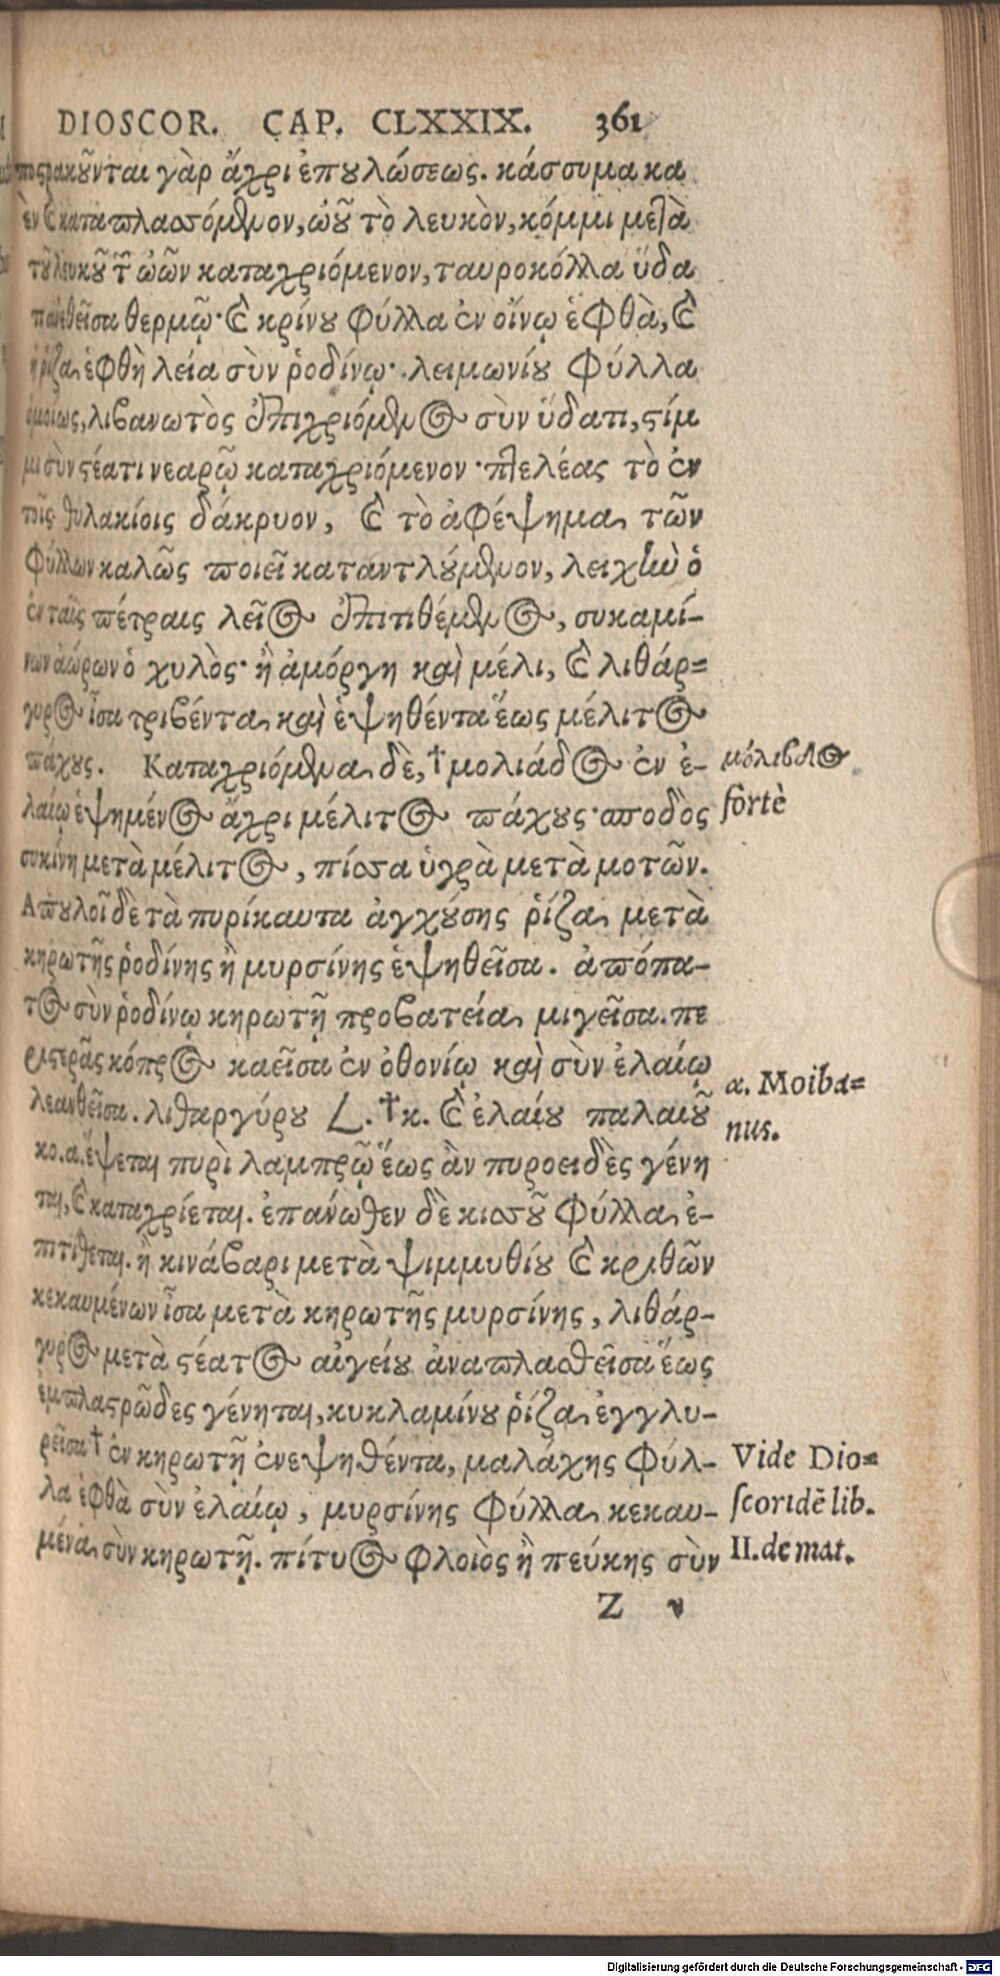 DIOSCOR. CAP. CLXXIX. 361
γὰρ ἄχρι ἐπουλώσεως. κάσσυμα κα
καταπλασσόμενον, ὠοῦ τὸ λευκὸν, κόμμι μετὰ
τοῦ λευκοῦ τῶν ὠῶν καταχριόμενον, ταυροκόλλα ὕδα
θερμῷ· καὶ κρίνου φύλλα ἐν οἴνῳ ἑφθὰ, καὶ
ἡ ῥίζα ἑφθὴ λεία σὺν ῥοδίνῳ· λειμωνίου φύλλα
ὁμοίως, λιβανωτὸς ἐπιχριόμενος σὺν ὕδατι, στίμ
μι σὺν στέατι νεαρῷ καταχριόμενον· πτελέας τὸ ἐν
τοῖς θυλακίοις δάκρυον, καὶ τὸ ἀφέψημα τῶν
φύλλων καλῶς ποιεῖ καταντλούμενον, λειχὴν ὁ
ἐν ταῖς πέτραις λεῖος ἐπιτιθέμενος, συκαμί-
νων ἀώρων ὁ χυλὸς· ἢ ἀμόργη καὶ μέλι, καὶ λιθάρ-
γυρος ἶσα τριβέντα καὶ ἑψηθέντα ἕως μέλιτος
πάχους. Καταχριόμενα δὲ, †μολιάδος ἐν ἐ-
λαίῳ ἑψημένος ἄχρι μέλιτος πάχους· σποδὸς
συκίνη μετὰ μέλιτος, πίσσα ὑγρὰ μετὰ μοτῶν.
Απουλοῖ δὲ τὰ πυρίκαυτα ἀγχούσης ῥίζα μετὰ
κηρωτῆς ῥοδίνης ἢ μυρσίνης ἑψηθεῖσα. ἀπόπα-
τος σὺν ῥοδίνῳ κηρωτῇ προβατεία μιγεῖσα. πε
ριστερᾶς κόπρος καεῖσα ἐν ὀθονίῳ καὶ σὺν ἐλαίῳ
λεανθεῖσα. λιθαργύρου L. †κ. καὶ ἐλαίου παλαιοῦ
κο. α. ἕψεται πυρὶ λαμπρῷ ἕως ἂν πυροειδὲς γένη
ται, καὶ καταχρίεται. ἐπάνωθεν δὲ κισσοῦ φύλλα ἐ-
πιτίθεται. ἢ κινάβαρι μετὰ ψιμμυθίου καὶ κριθῶν
κεκαυμένων ἶσα μετὰ κηρωτῆς μυρσίνης, λιθάρ-
γυρος μετὰ στέατος αἰγείου ἀναπλασθεῖσα ἕως
ἐμπλαστρῶδες γένηται, κυκλαμίνου ῥίζα ἐγγλυ-
φεῖσα† ἐν κηρωτῇ ἐνεψηθέντα, μαλάχης φύλ-
λα ἑφθὰ σὺν ἐλαίῳ, μυρσίνης φύλλα κεκαυ-
μένα σὺν κηρωτῇ. πίτυος φλοιὸς ἢ πεύκης σὺν
Z v
μόλιβδος
fortè
α. Moiba=
nus.
Vide Dio=
scoridē lib.
II. de mat.
Digitalisierung gefördert durch die Deutsche Forschungsgemeinschaft - DFG